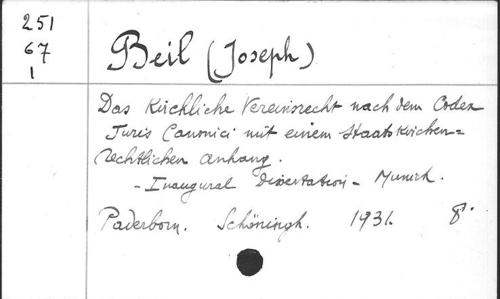 251
67
1
Beil (Joseph)
Das Kirchliche Vereinsrecht nach dem Codex
Juris Canonici mit einem Staatskirchen=
rechtlichen Anhang.
- Inaugural Dissertation - Munich.
Paderborn. Schöningh. 1931. 8°.